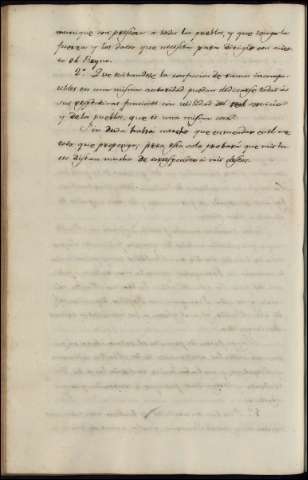 que con presteza à todos los pueblos, y que tenga la
fuerza y los datos que necesita para dirigir con acier-
to el Reyno.
2.º Que evitandose la confusion de ramos incompa-
tibles en una misma autoridad puedan dedicarse todos à
sus respectivas funciones con utilidad del real servicio
y de los pueblos, que es una misma cosa.
Sin duda habrà mucho que enmendar en el
que propongo; pero esto solo probarà que mis lu-
ces distan mucho de corresponder à mis deseos.